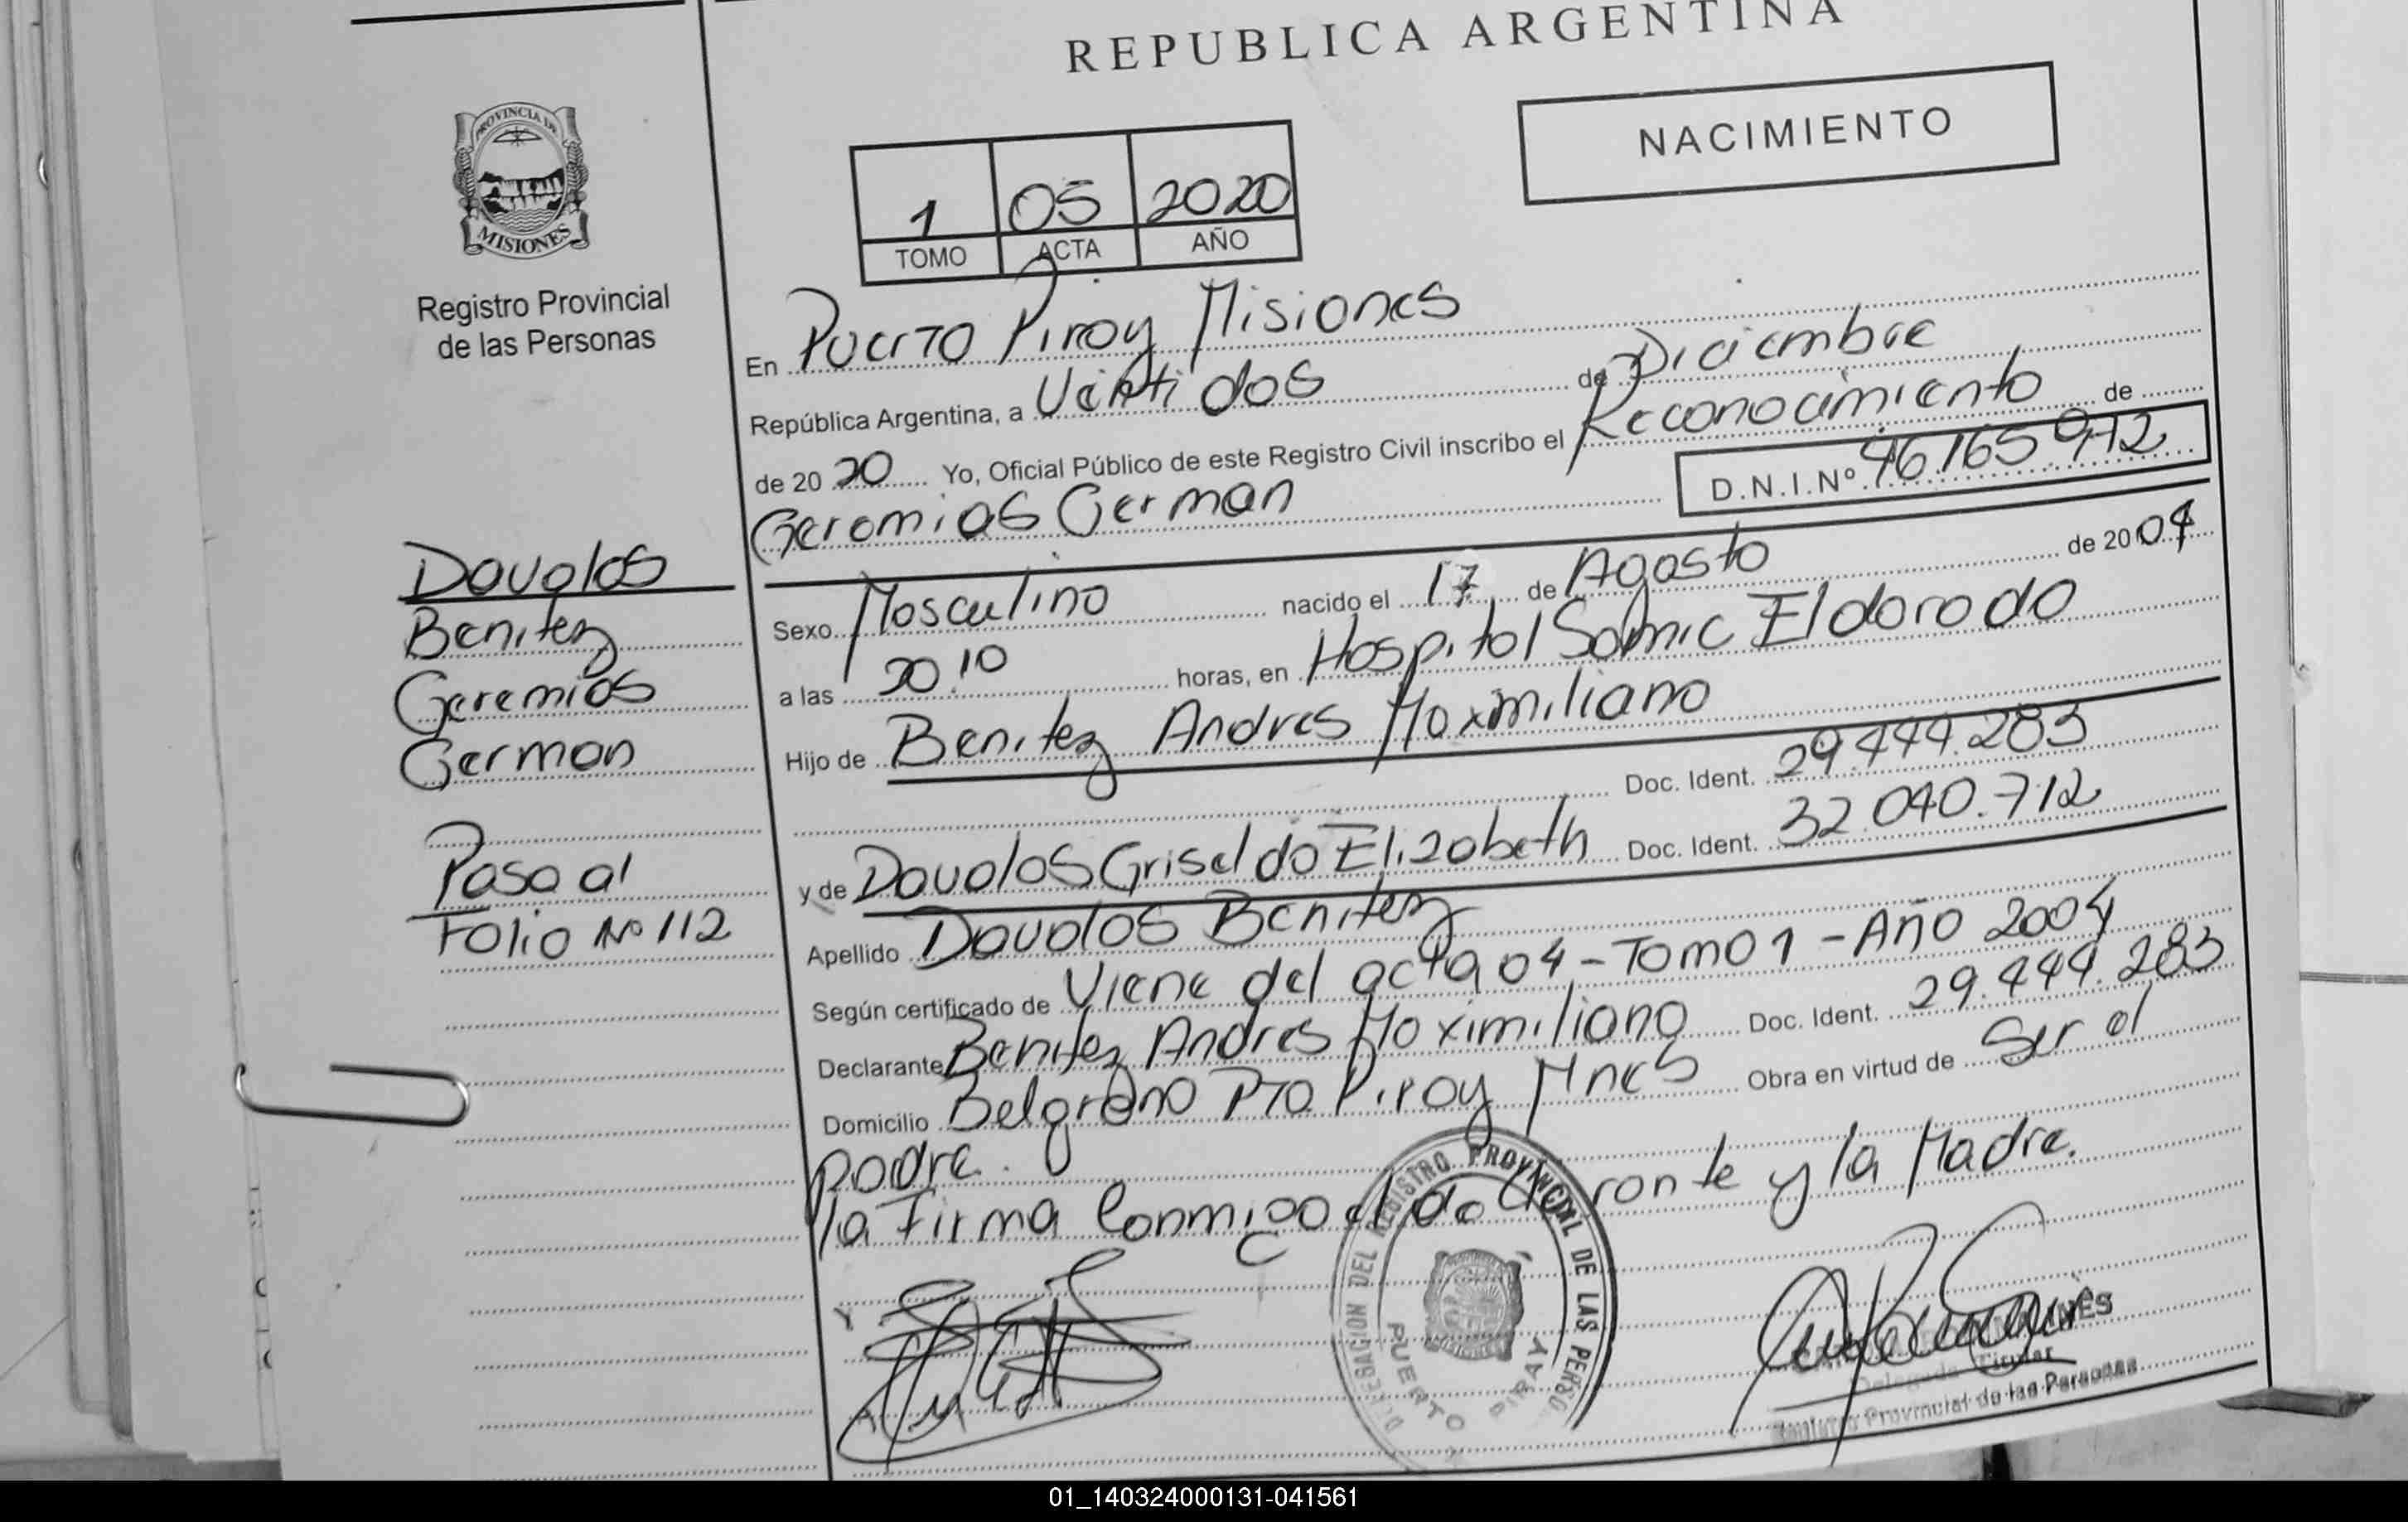 REPUBLICA ARGENTINA
NACIMIENTO
PROVINCIA DE
MISIONES
Registro Provincial
de las Personas
1 05 2020
TOMO ACTA AÑO
En Puerto Piray Misiones
República Argentina, a Veintidos de Diciembre
de 20 20 Yo, Oficial Público de este Registro Civil inscribo el Reconocimiento de
Geromias German D.N.I.Nº 46165972
Davalos
Benitez
Geremias
German
Paso al
Folio Nº 112
Sexo Masculino nacido el 17 de Agosto de 20 04
a las 20.10 horas, en Hospital Samic Eldorado
Hijo de Benitez Andres Maximiliano
Doc. Ident. 29.444.283
y de Davalos Griselda Elizabeth Doc. Ident. 32.040.712
Apellido Davalos Benitez
Según certificado de Viene del acta 04 - Tomo 1 - Año 2004
Declarante Benitez Andres Maximiliano Doc. Ident. 29.444.283
Domicilio Belgrano Pto Piray Mnes Obra en virtud de Ser el
padre.
la Firma Conmigo el declarante y la Madre.
DELEGACION DEL REGISTRO PROVINCIAL DE LAS PERSO
PUERTO PIRAY
Delegada Titular
Registro Provincial de las Personas
01_140324000131-041561